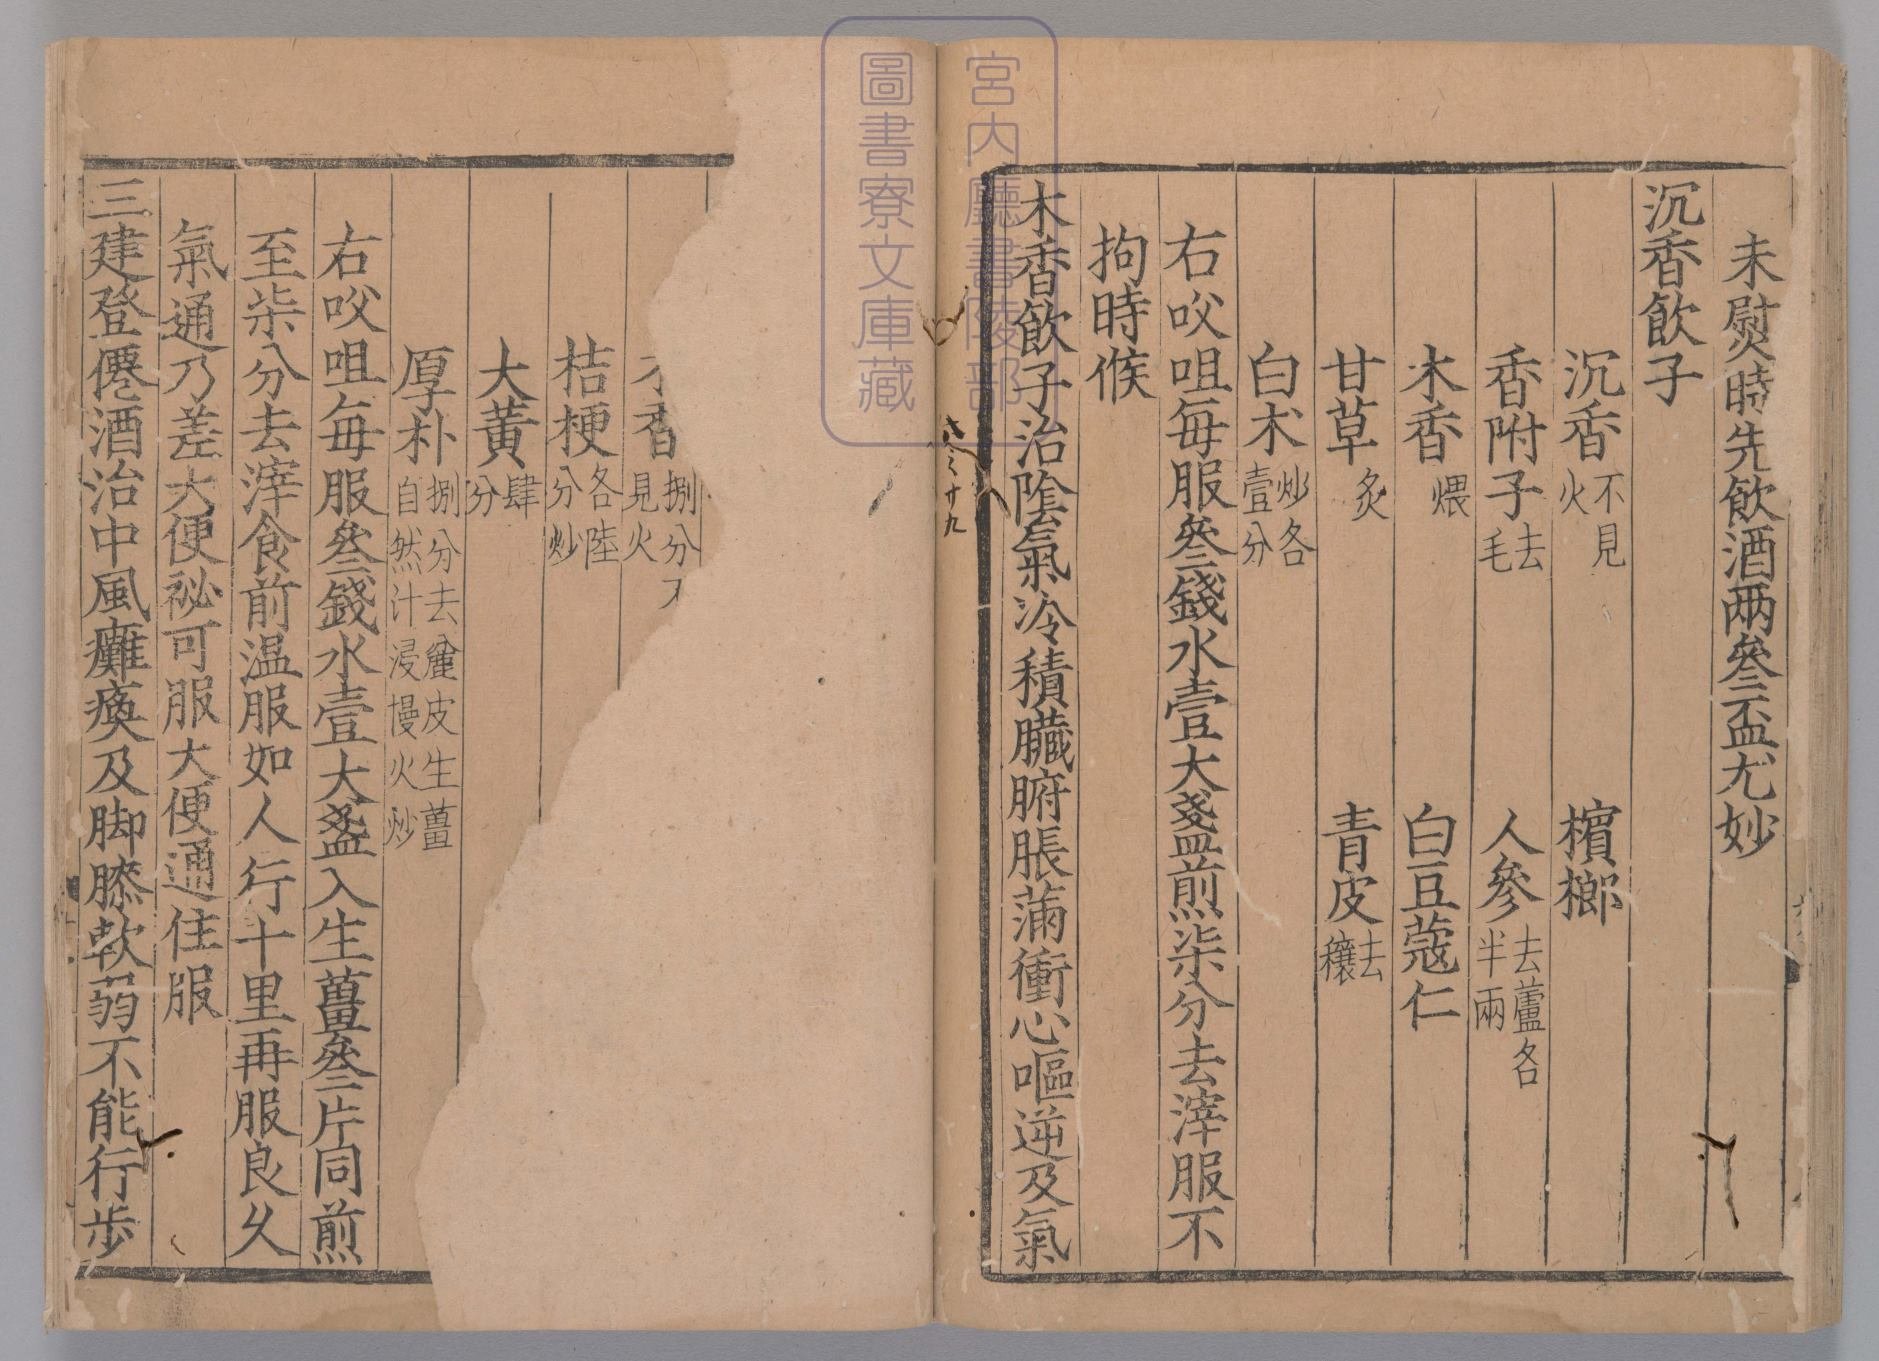 未熨時先飲酒两叄盃尤妙
沉香飲子
沉香不見火　檳榔
香附子去毛　人參去蘆各半兩
木香煨　白豆蔻仁
甘草炙　青皮去穰
白术炒各壹分
右㕮咀每服叄錢水壹大盞煎柒分去滓服不
拘時候
木香飲子治陰氣冷積臟腑脹滿衝心嘔逆及氣
香捌分不見火
桔梗各陸分炒
大黄肆分
厚朴捌分去麄皮生薑自然汁浸慢火炒
右㕮咀每服叄錢水壹大盞入生薑叄片同煎
至柒分去滓食前温服如人行十里再服良乆
氣通乃差大便祕可服大便通住服
三建登僊酒治中風癱瘓及脚膝軟弱不能行步
宮内廳書陵部
圖書寮文庫藏